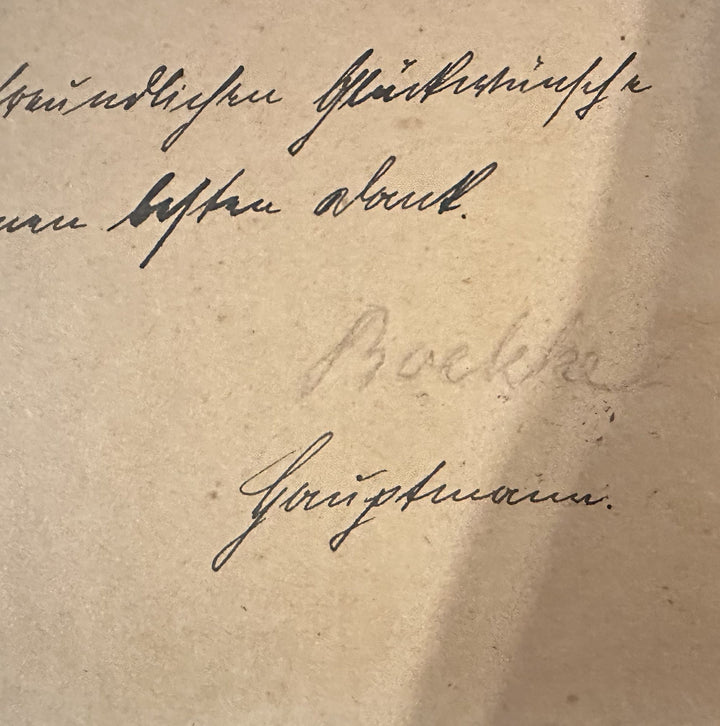 freundlichen Glückwünsche
nen besten Dank.
Boelke
Hauptmann.